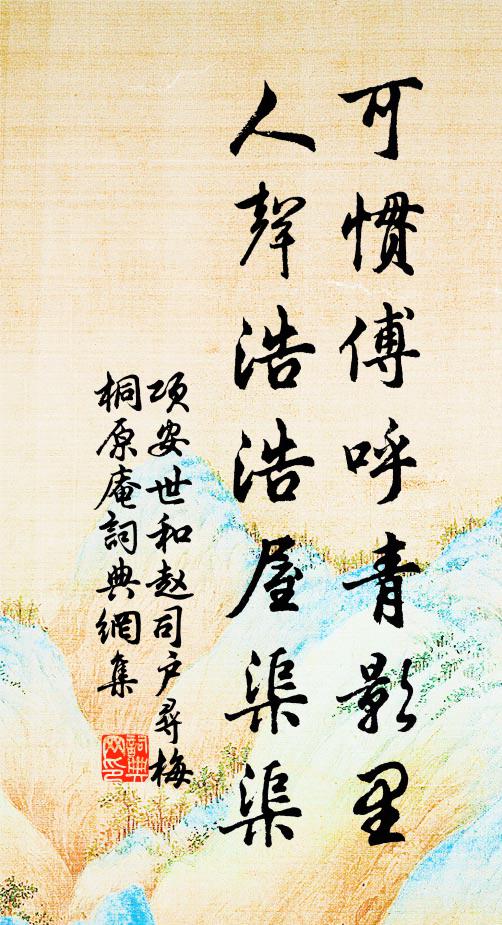 可惯傅呼青影里
人聲浩浩屋渠渠
项安世和赵司户尋梅
桐原庵詞典網集
詞典网印